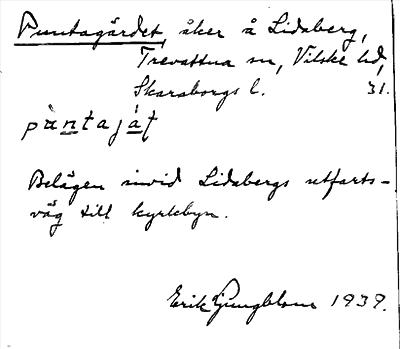 Puntagärdet, åker å Lidaberg,
Trevattna sn, Vilske hd,
Skaraborgs l. 31.
pùntaját
Belägen invid Lidabergs utfarts-
väg till kyrkbyn.
Erik Ljungblom 1939.